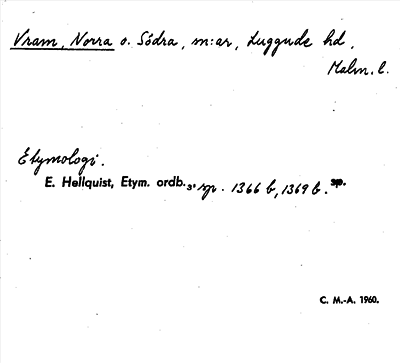 Vram, Norra o. Södra, m:ar, Luggude hd,
Malm. l.
Etymologi.
E. Hellquist, Etym. ordb.3, sp. 1366 b, 1369 b. sp.
C. M.-A. 1960.